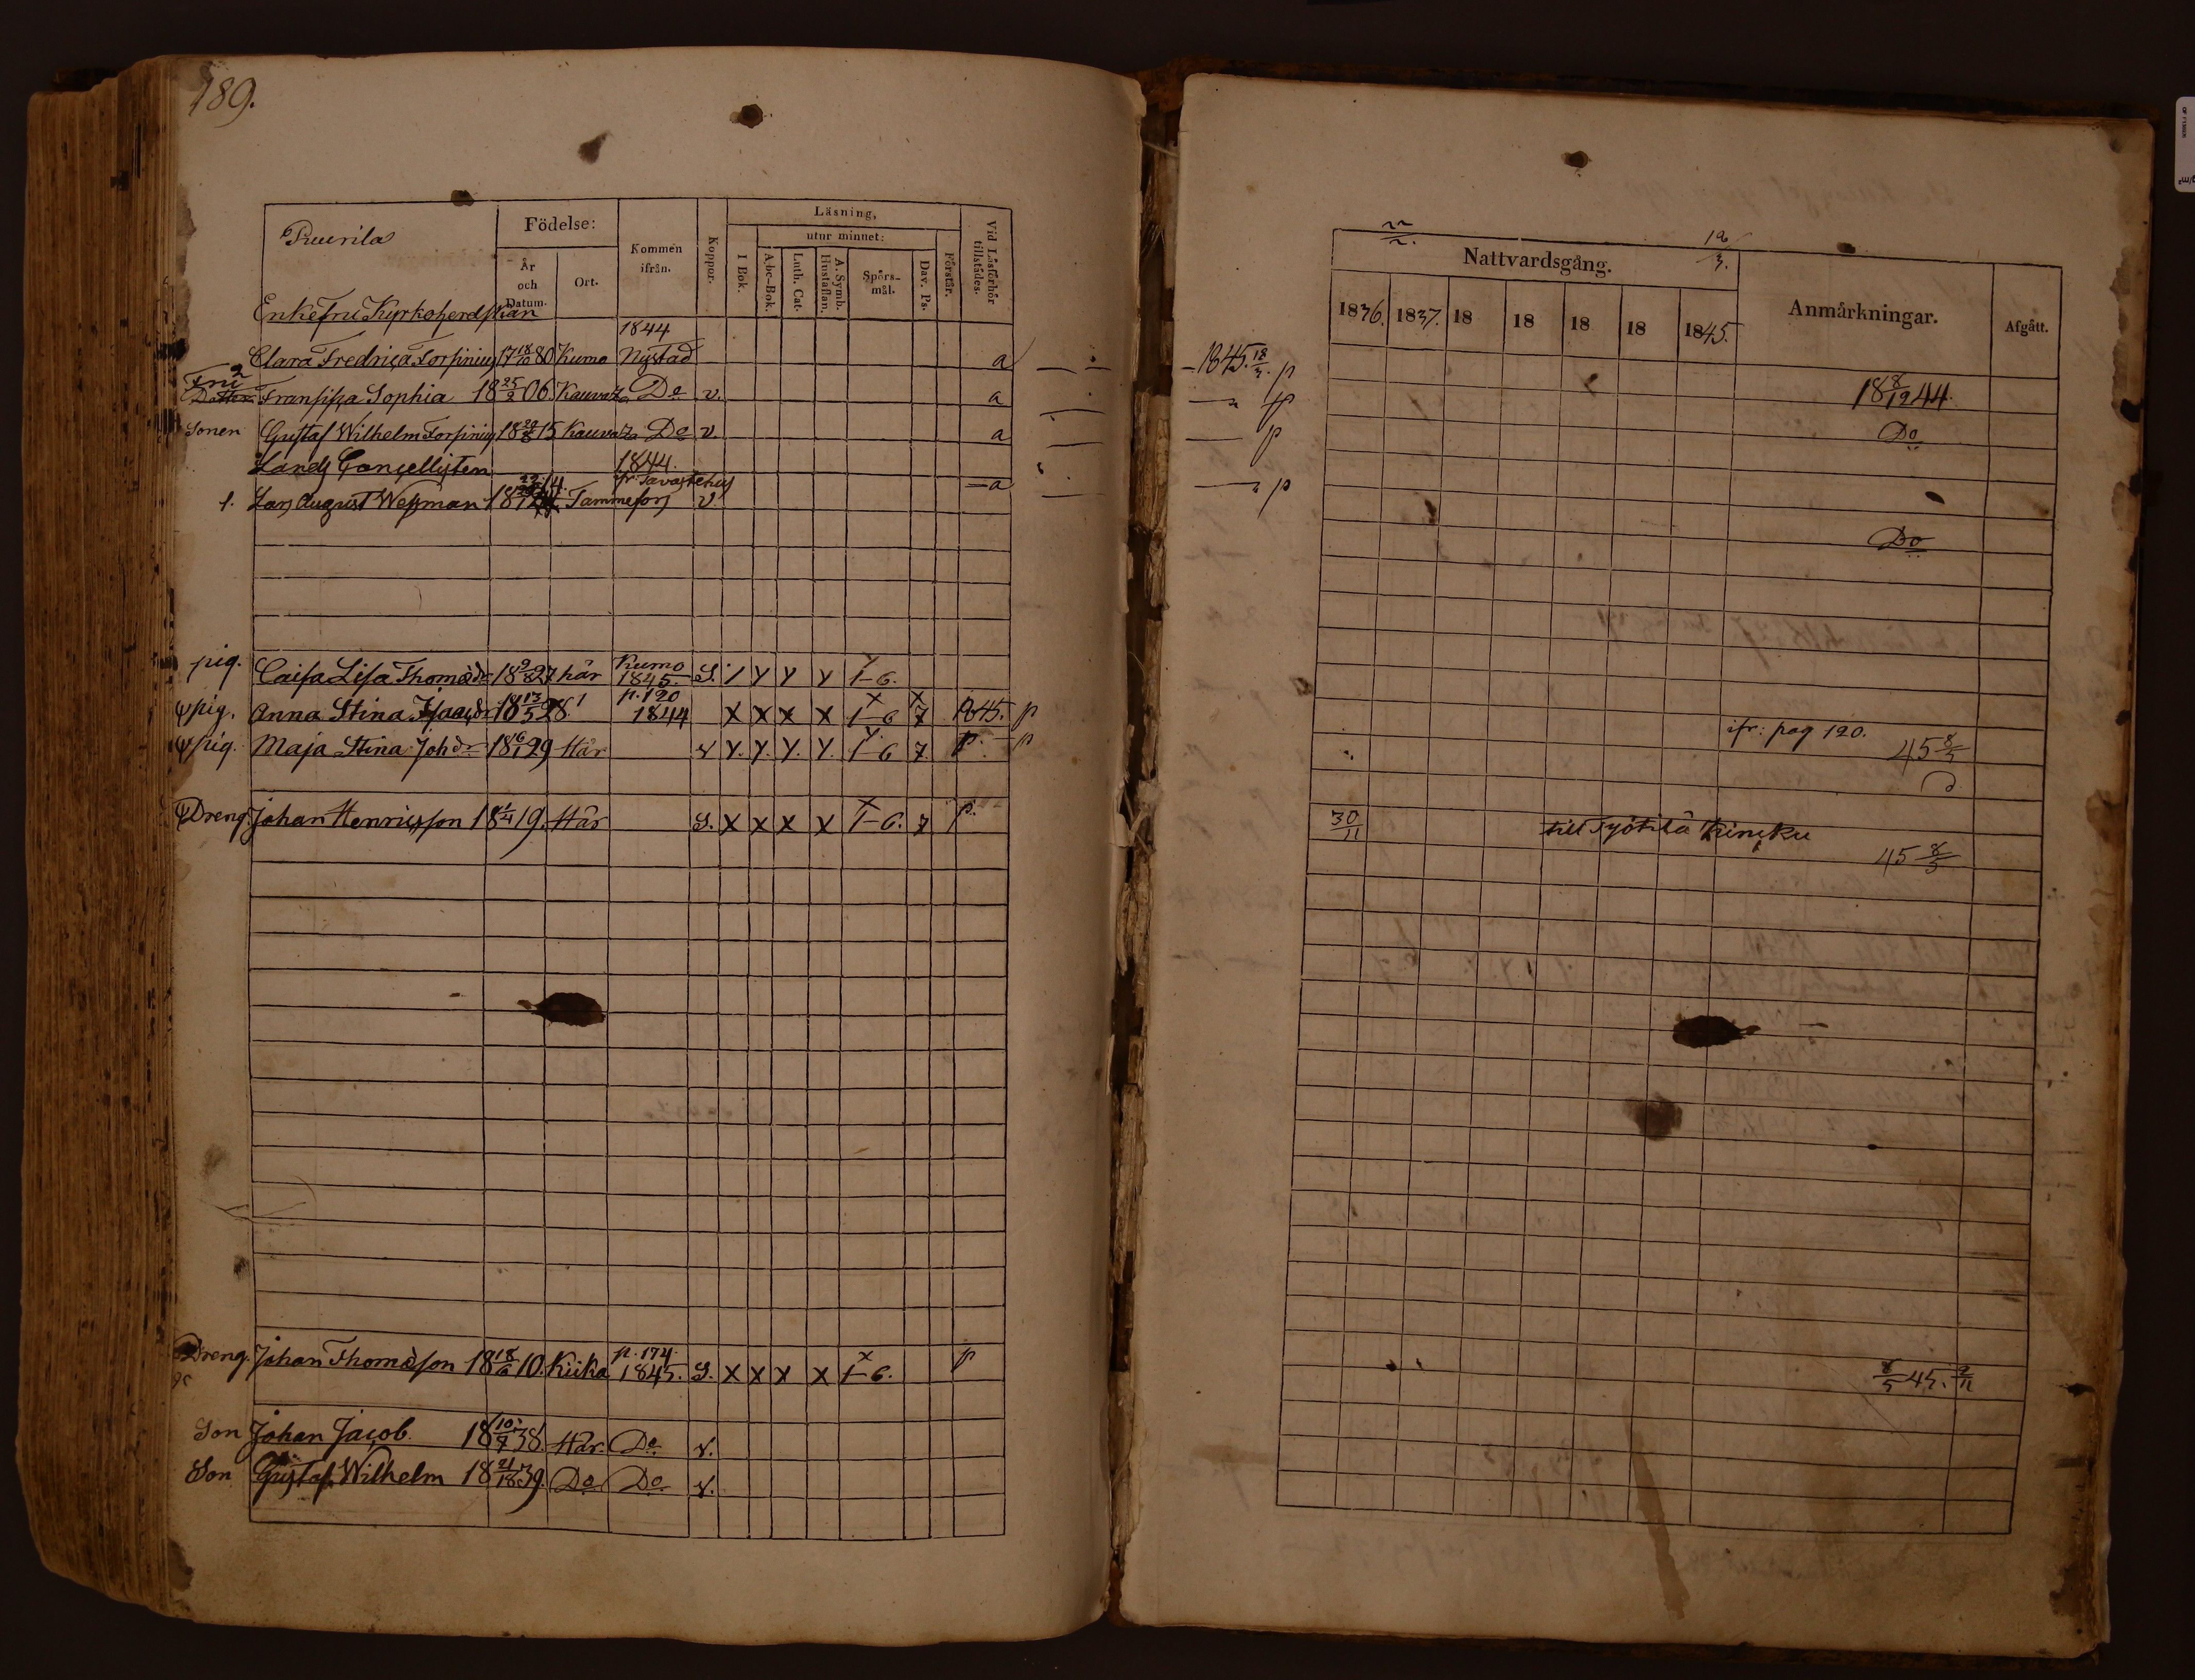 189.
Puurila
Födelse:
År och Datum.
Ort.
Kommen ifrån.
Koppor.
Läsning,
utur minnet:
I Bok.
Abc-Bok.
Luth. Cat.
A. Symb. Hustaflan.
Spörs-mål.
Dav. Ps.
Förstår.
Vid Läsförhör tillstädes.
EnkeFru Kyrkoherdskan
Clara Fredrica Forsinius 17 18/10 80 Kumo 1844 Nystad a
Fru 2 Fransisca Sophia 18 25/2 06 Kauvatz Do v. a
Sonen Gustaf Wilhelm Forsinius 18 15 Kauvatz Do v. a
Lands Cancellisten
1. Lars August Wessman 18 Tammefors 1844. fr. Tavastehus v. a
pig. Caisa Lisa Thomædr 18 9/8 27 här Kumo 1845. S. 1 Y Y Y 1-6.
pig. Anna Stina Isaacsdr 18 13/5 28 p. 120 1844 X X X X 1-6 7 1845. p
pig. Maja Stina Johdr 18 16/1 29 Här v Y. Y. Y. Y. 1-6 7. p. p
Dreng. Johan Henricsson 18 1/4 19. Här S. X X X X 1-6. 7 p.
Dreng. Johan Thomæson 18 18/6 10. Kiika p. 174. 1845. S. X X X X 1-6. p
Son Johan Jacob 18 10/7 38. Här. Do v.
Son Gustaf Wilhelm 18 39. Do Do v.
Nattvardsgång.
1836. 1837. 18 18 18 18 1845.
Anmärkningar.
Afgått.
1845. 18/3. p
p
p
p
18 8/19 44.
Do
Do
ifr: pag 120.
45 8/5
30/11 till Työtilä
45 8/5
8/5 45. 9/11